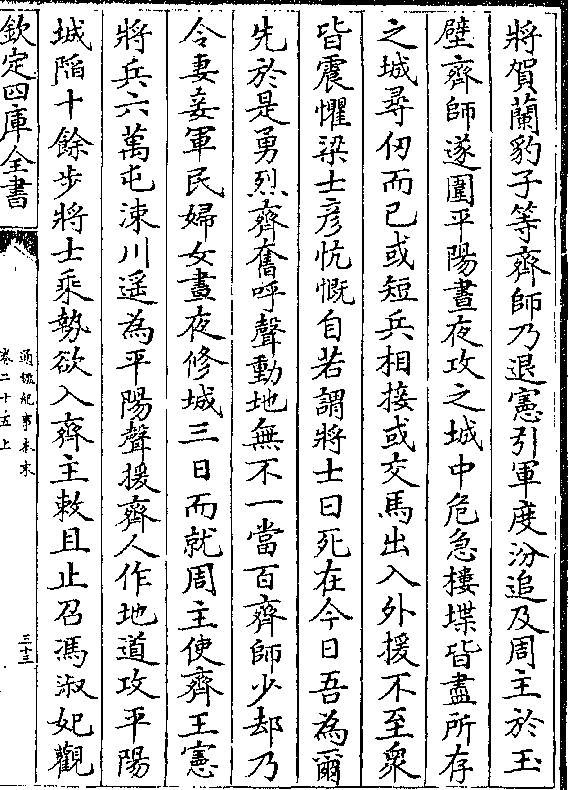 將賀蘭豹子等齊師乃退憲引軍度汾追及周主於玉
壁齊師遂圍平陽晝夜攻之城中危急樓堞皆盡所存
之城尋仞而已或短兵相接或交馬出入外援不至衆
皆震懼梁士彦忼慨自若謂將士曰死在今日吾為爾
先於是勇烈齊奮呼聲動地無不一當百齊師少却乃
令妻妾軍民婦女晝夜修城三日而就周主使齊王憲
將兵六萬屯涑川遥為平陽聲援齊人作地道攻平陽
城陷十餘步將士乘勢欲入齊主敕且止召馮淑妃觀
欽定四庫全書
通鑑紀事本末
卷二十五上
三十三